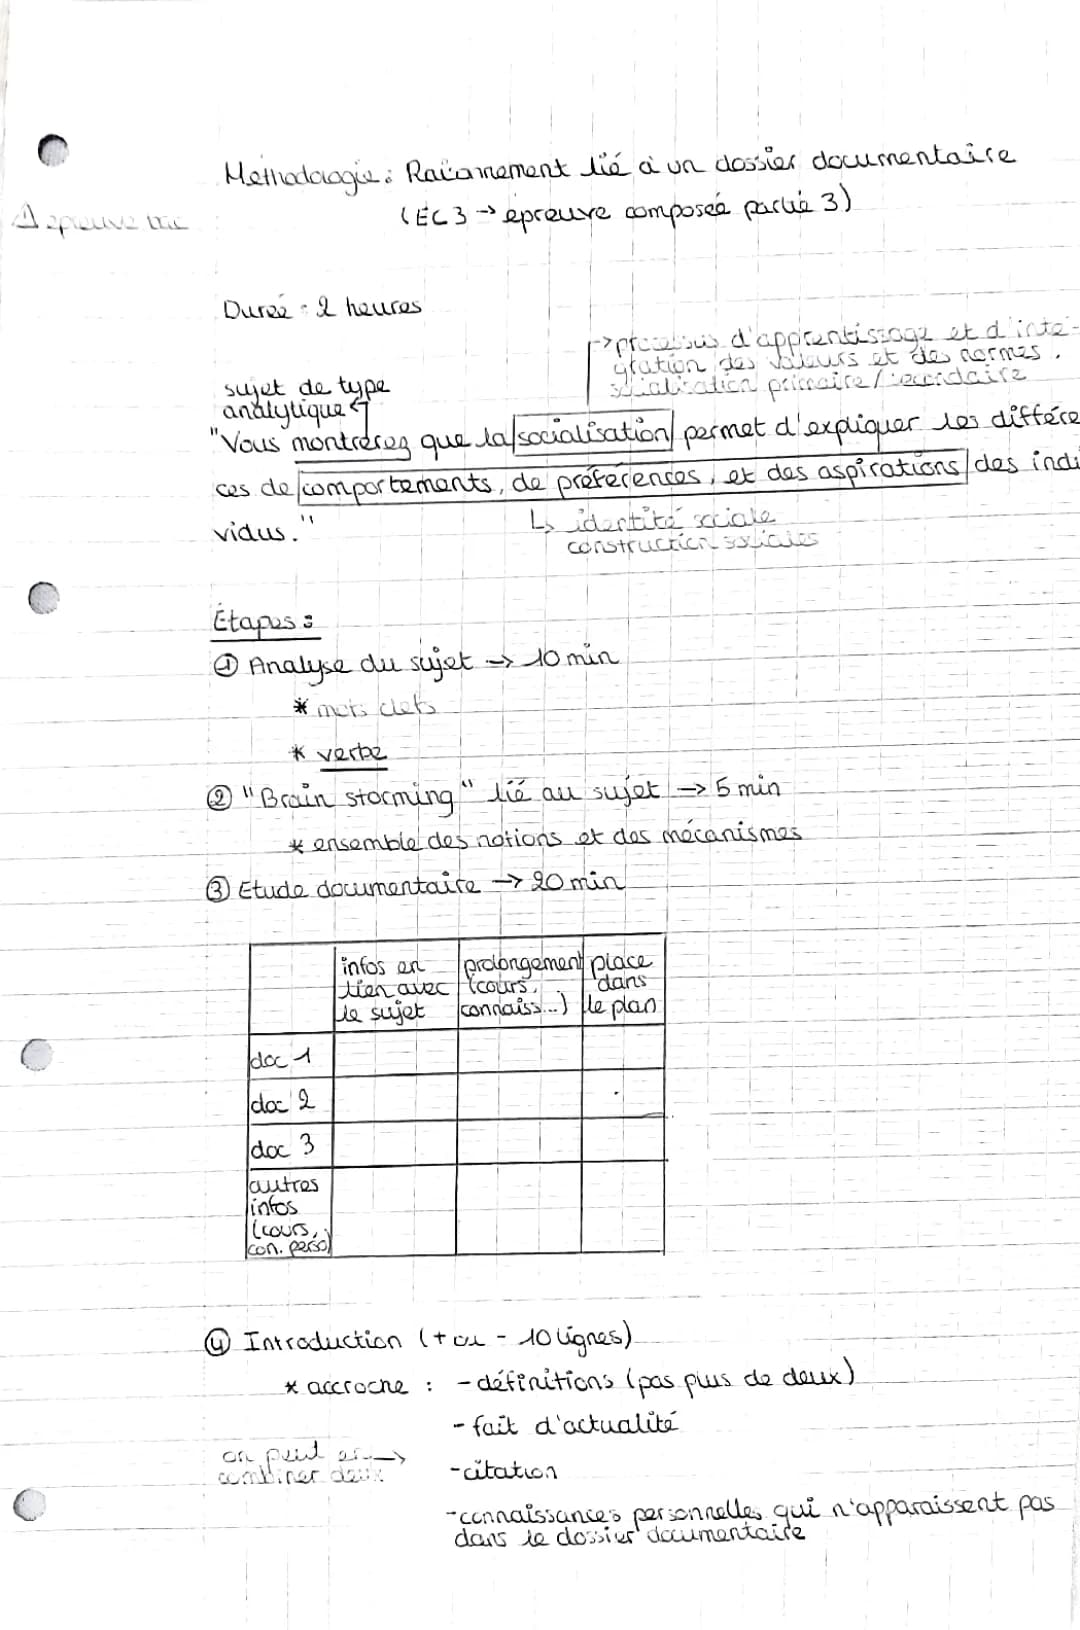 Methodologie : Raisonnement lié à un dossier documentaire
(EC3 → épreuve composée partie 3)
épreuve bac
Durée : 2 heures
→ processus d'apprentissage et d'inté-
gration des valeurs et des normes.
socialisation primaire / secondaire
sujet de type
analytique
"Vous montrerez que la socialisation permet d'expliquer les différe
ces de comportements, de préférences, et des aspirations des indi
vidus."
↳ identité sociale
construction sociales
Étapes :
① Analyse du sujet → 10 min
* mots clefs
* verbe
② "Brain storming" lié au sujet → 5 min
* ensemble des notions et des mécanismes
③ Etude documentaire → 20 min
infos en lien avec le sujet
prolongement (cours, connaiss...)
place dans le plan
doc 1
doc 2
doc 3
autres
infos
(cours,
con. perso)
④ Introduction (+ ou - 10 lignes)
* accroche : - définitions (pas plus de deux)
- fait d'actualité
on peut en →
combiner deux
- citation
- connaissances personnelles qui n'apparaissent pas
dans le dossier documentaire